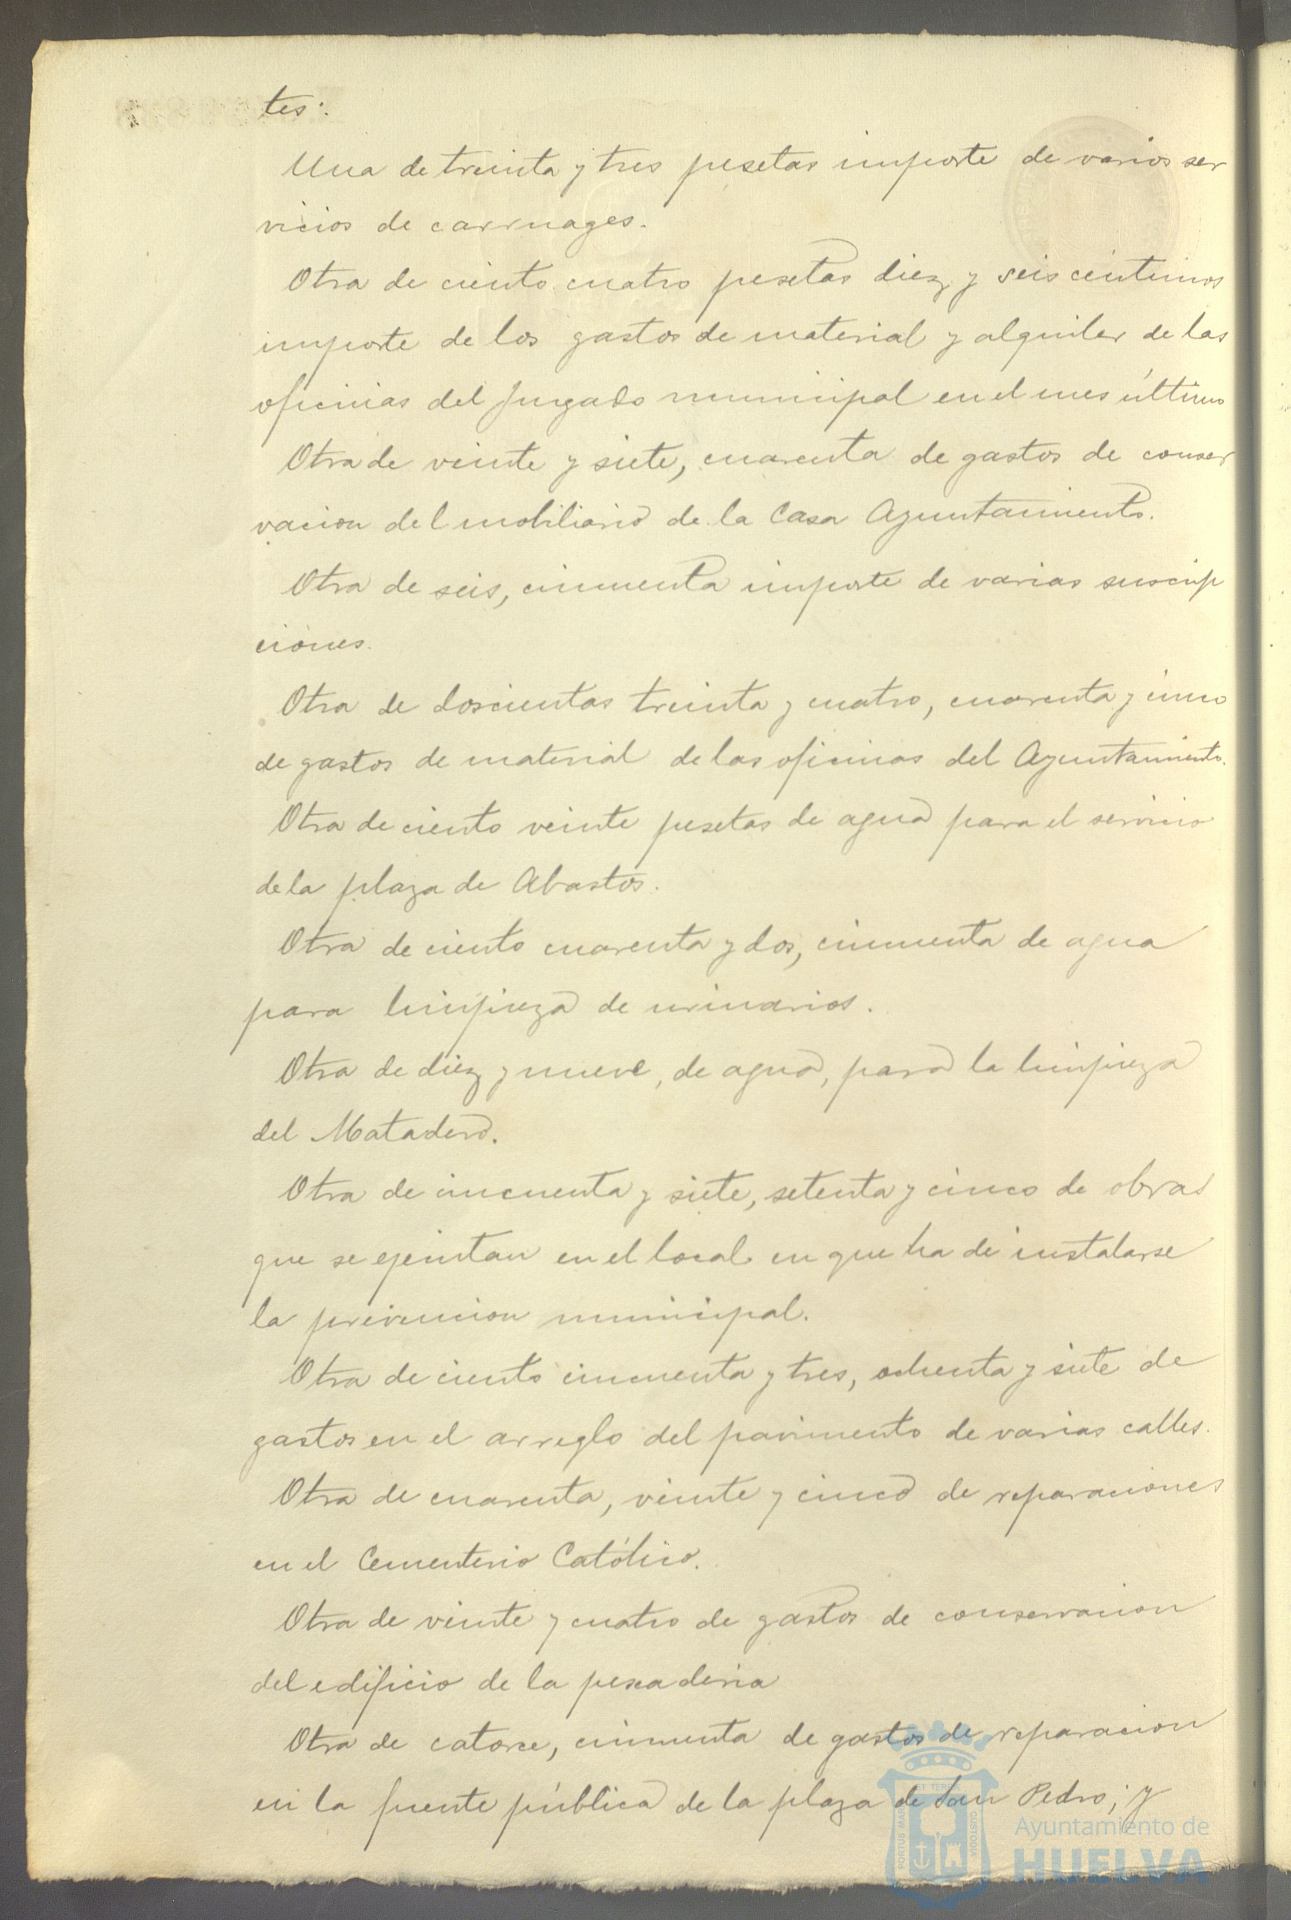 tes:
Una de treinta y tres pesetas importe de varios ser
vicios de carruages.
Otra de ciento cuatro pesetas diez y seis centimos
importe de los gastos de material y alquiler de las
oficinas del Juzgado municipal en el mes último
Otra de veinte y siete, cuarenta de gastos de conser
vacion del mobiliario de la Casa Ayuntamiento.
Otra de seis, cincuenta importe de varias suscrip
ciones.
Otra de doscientas treinta y cuatro, cuarenta y cinco
de gastos de material de las oficinas del Ayuntamiento.
Otra de ciento veinte pesetas de agua para el servicio
de la plaza de Abastos.
Otra de ciento cuarenta y dos, cincuenta de agua
para limpieza de urinarios.
Otra de diez y nueve, de agua, para la limpieza
del Matadero.
Otra de cincuenta y siete, setenta y cinco de obras
que se ejecutan en el local en que ha de instalarse
la prevencion municipal.
Otra de ciento cincuenta y tres, ochenta y siete de
gastos en el arreglo del pavimento de varias calles.
Otra de cuarenta, veinte y cinco de reparaciones
en el Cementerio Católico.
Otra de veinte y cuatro de gastos de conservacion
del edificio de la pescaderia
Otra de catorce, cincuenta de gastos de reparacion
en la fuente pública de la plaza de San Pedro; y
Ayuntamiento de
HUELVA